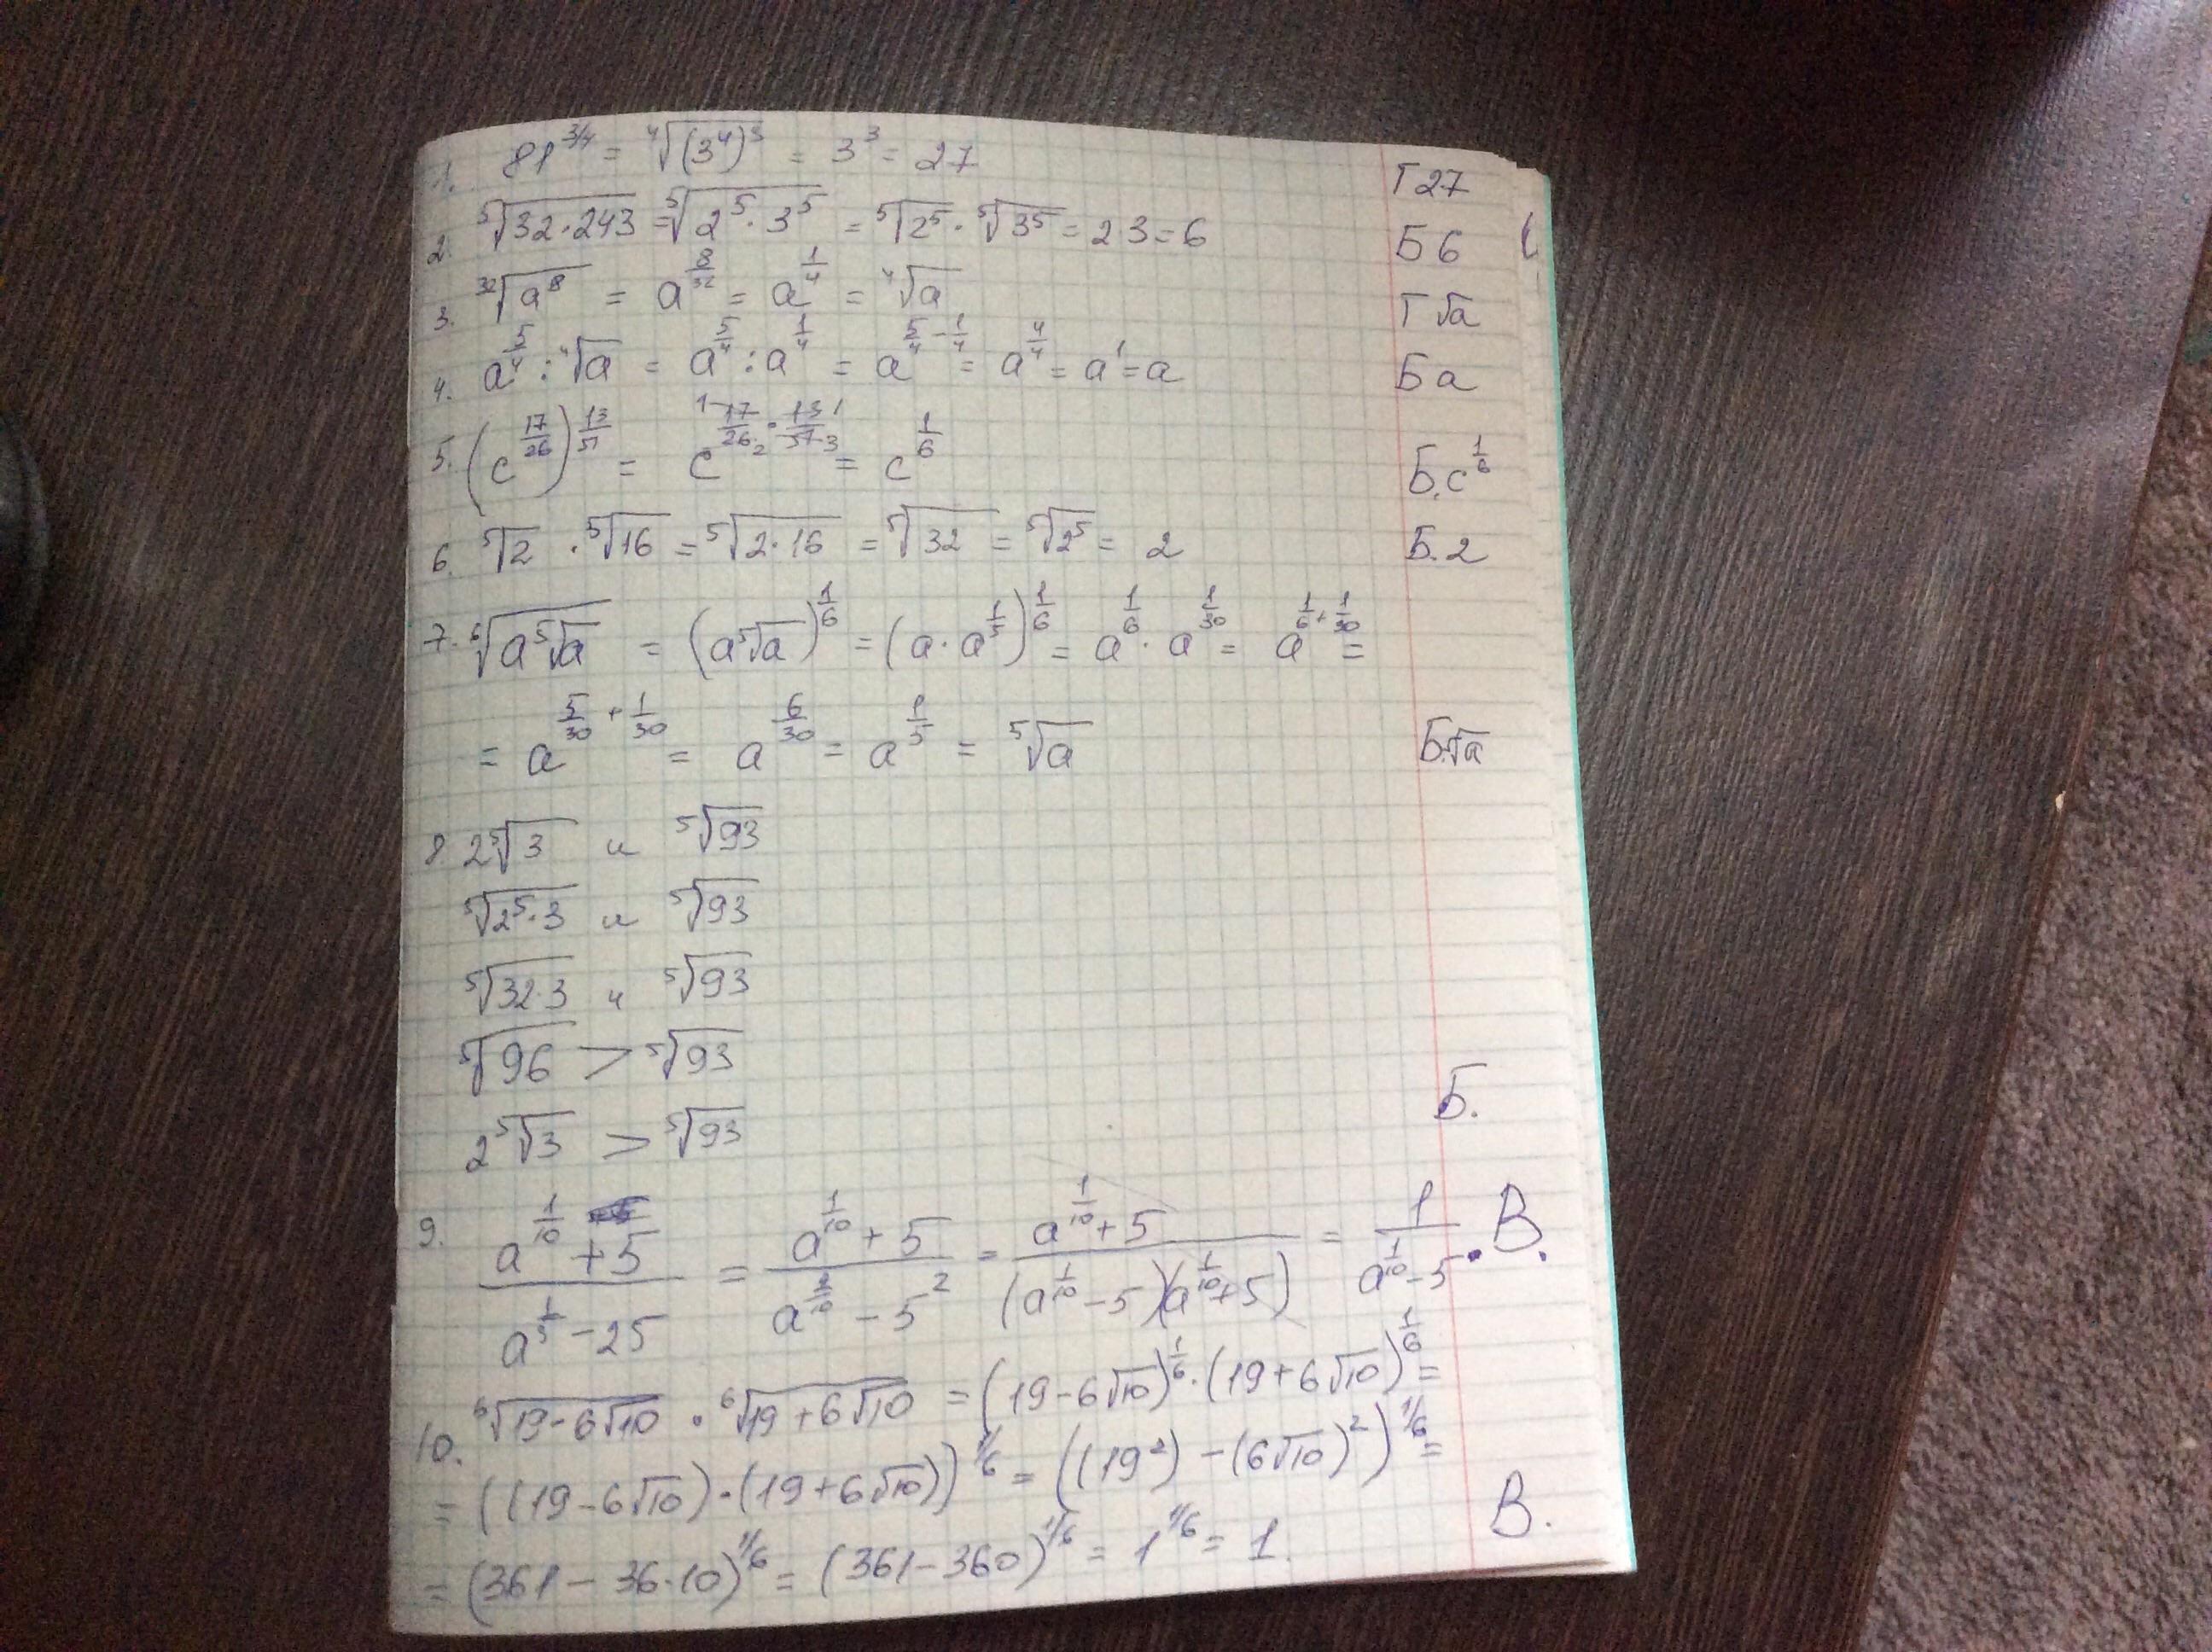 1. 81^{3/4} = ⁴√((3⁴)³) = 3³ = 27 Г 27
2. ⁵√(32·243) = ⁵√(2⁵·3⁵) = ⁵√(2⁵) · ⁵√(3⁵) = 2·3 = 6 Б 6
3. ³²√(a⁸) = a^{8/32} = a^{1/4} = ⁴√a Г √a
4. a^{5/4} : ⁴√a = a^{5/4} : a^{1/4} = a^{5/4 - 1/4} = a^{4/4} = a¹ = a Б a
5. (c^{17/26})^{13/51} = c^{17/26 · 13/51} = c^{1/6} Б. c^{1/6}
6. ⁵√2 · ⁵√16 = ⁵√(2·16) = ⁵√32 = ⁵√(2⁵) = 2 Б. 2
7. ⁶√(a ⁵√a) = (a ⁵√a)^{1/6} = (a · a^{1/5})^{1/6} = a^{1/6} · a^{1/30} = a^{1/6 + 1/30} =
= a^{5/30 + 1/30} = a^{6/30} = a^{1/5} = ⁵√a Б. √a
8 2 ⁵√3 и ⁵√93
⁵√(2⁵·3) и ⁵√93
⁵√(32·3) и ⁵√93
⁵√96 > ⁵√93
2 ⁵√3 > ⁵√93 Б.
9. (a^{1/10} + 5)/(a^{1/5} - 25) = (a^{1/10} + 5)/(a^{2/10} - 5²) = (a^{1/10} + 5)/((a^{1/10} - 5)(a^{1/10} + 5)) = 1/(a^{1/10} - 5) . В.
10. ⁶√(19 - 6√10) · ⁶√(19 + 6√10) = (19 - 6√10)^{1/6} · (19 + 6√10)^{1/6} =
= ((19 - 6√10) · (19 + 6√10))^{1/6} = ((19²) - (6√10)²)^{1/6} =
= (361 - 36·10)^{1/6} = (361 - 360)^{1/6} = 1^{1/6} = 1. В.